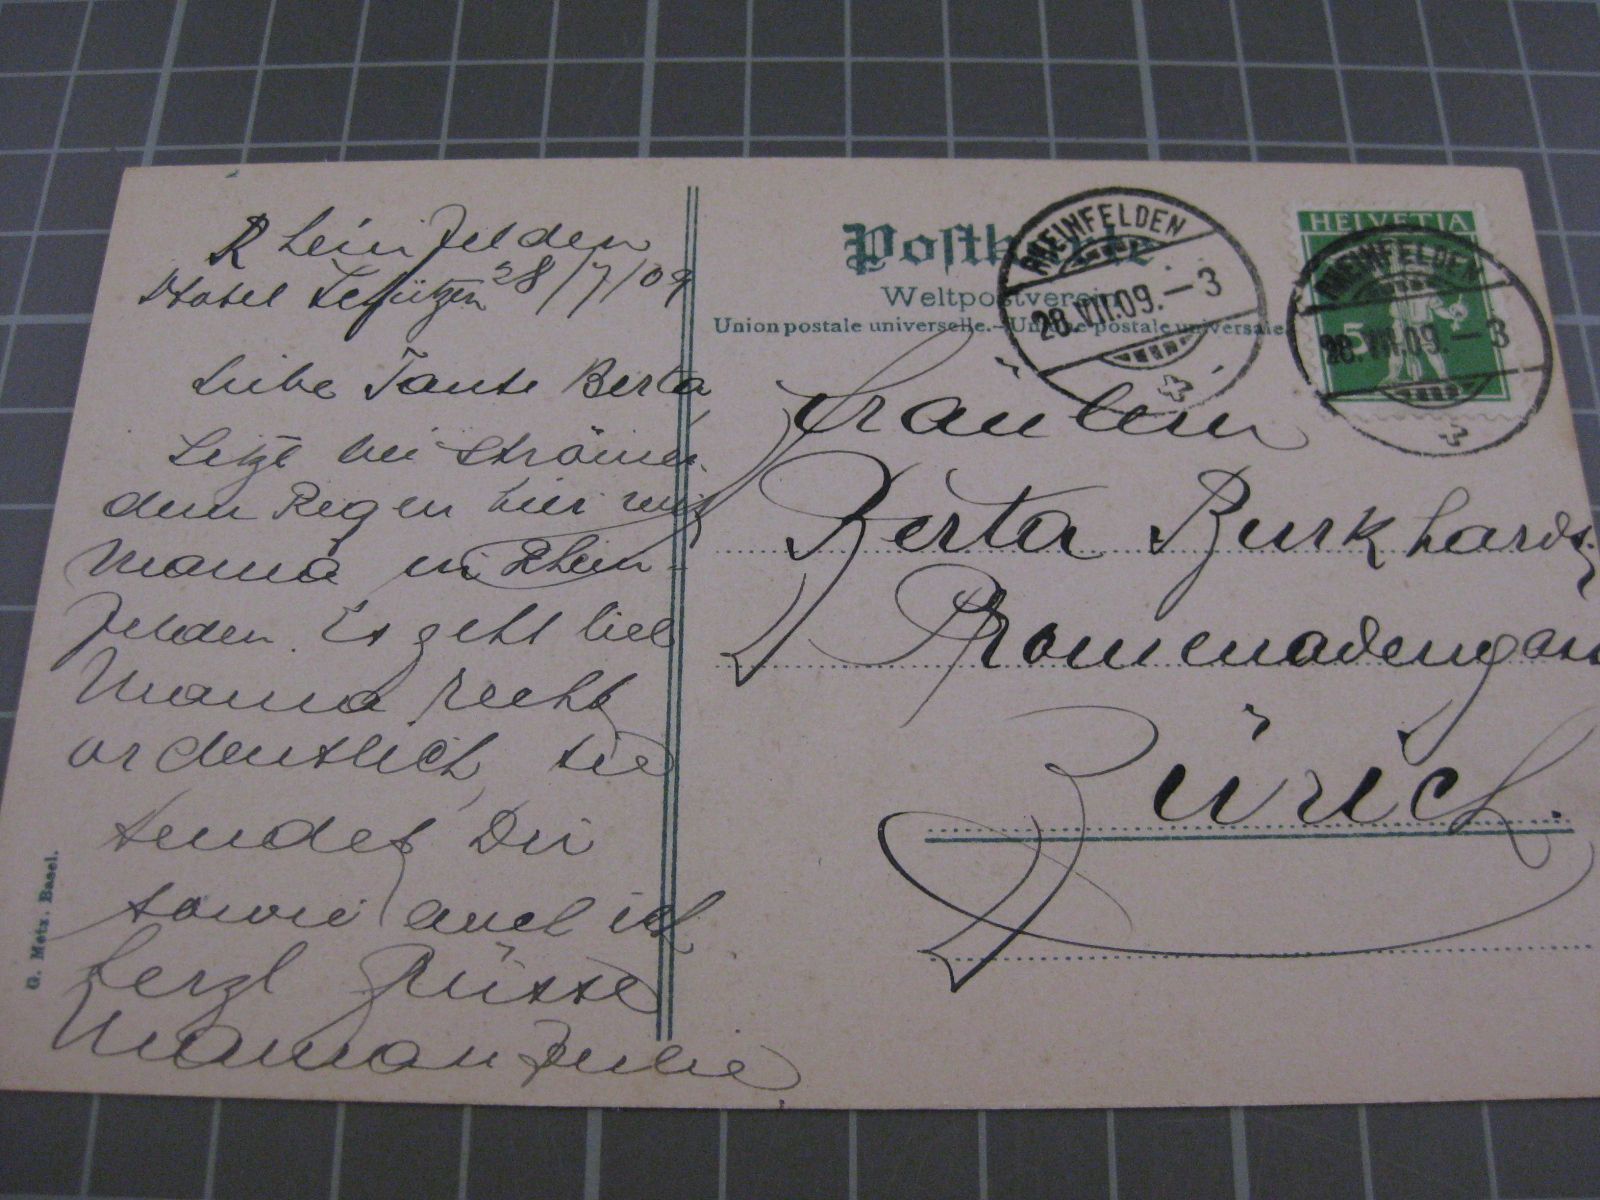 Rheinfelden
Hotel Schützen 28/7/09
Liebe Tante Berta
Sitze bei strömen-
dem Regen hier mit
Mama in Rhein-
felden. Es geht lieb
Mama recht
ordentlich, sie
sendet Dir
sowie auch ich
herzl Grüsse
Maman Julie
G. Metz. Basel.
Postkarte
Weltpostverein
Union postale universelle. – Unione postale universale
RHEINFELDEN
28.VII.09.–3
HELVETIA
5
RHEINFELDEN
28.VII.09.–3
Fräulein
Berta Burkhardt
Promenadengass
Zürich.